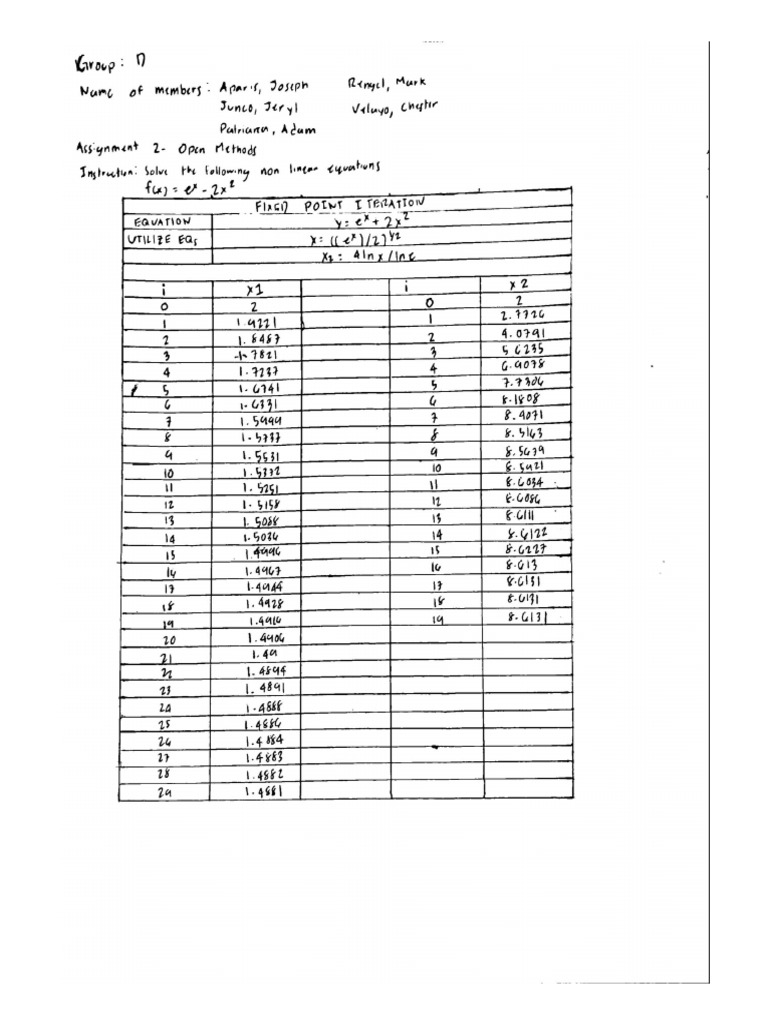 Group: D
Name of members: Aparis, Joseph Renyel, Mark
Junco, Jeryl Velayo, Chester
Adam
Assignment 2- Open Methods
Instruction: Solve the following non linear equations
f(x) = e^x - 2x^2
FIXED POINT ITERATION
EQUATION y= e^x + 2x^2
UTILIZE EQs x= ((e^x)/2)^1/2
x2 = 4lnx/lne
i x1 i x2
0 2 0 2
1 1.9221 1 2.7726
2 1.8487 2 4.0791
3 1.7821 3 5.6235
4 1.7237 4 6.9078
5 1.6741 5 7.7306
6 1.6331 6 8.1808
7 1.5999 7 8.4071
8 1.5737 8 8.5163
9 1.5531 9 8.5679
10 1.5372 10 8.5921
11 1.5251 11 8.6034
12 1.5158 12 8.6086
13 1.5088 13 8.6111
14 1.5036 14 8.6122
15 1.4996 15 8.6227
16 1.4967 16 8.613
17 1.4944 17 8.6131
18 1.4928 18 8.6131
19 1.4916 19 8.6131
20 1.4906
21 1.49
22 1.4894
23 1.4891
24 1.4888
25 1.4886
26 1.4884
27 1.4883
28 1.4882
29 1.4881